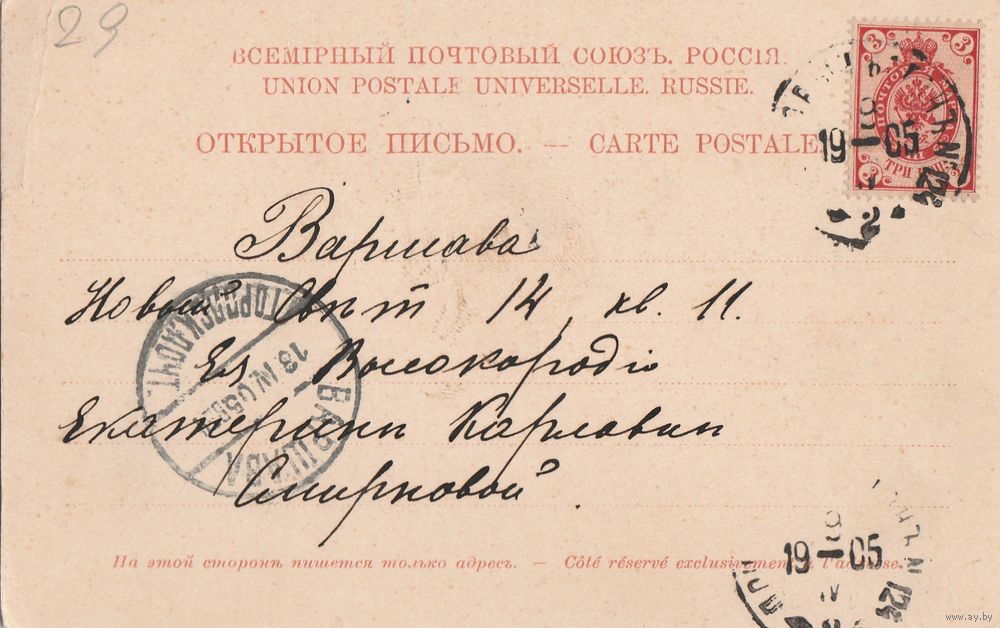 29
ВСЕМІРНЫЙ ПОЧТОВЫЙ СОЮЗЪ. РОССІЯ.
UNION POSTALE UNIVERSELLE. RUSSIE.
ОТКРЫТОЕ ПИСЬМО. — CARTE POSTALE
3 3
ПОЧТОВ
ТРИ КОП
3 3
19 05
№ 124
2
Варшава
Новый Свѣт 14, кв. 11.
Ея Высокородію
Екатеринѣ Карловнѣ
Смирновой.
ВАРШАВА
13 IV 05
На этой сторонѣ пишется только адресъ. — Côté réservé exclusivement à l'adresse.
19 05
№ 124
www.ay.by